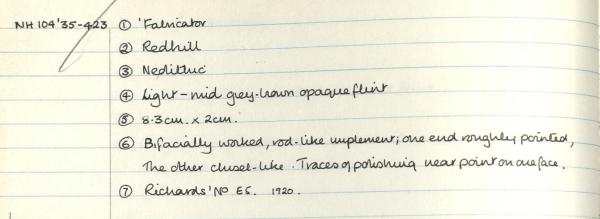 NH 104'35-423 ① 'Fabricator
② Redhill
③ Neolithic
④ Light-mid grey-brown opaque flint
⑤ 8.3cm. x 2cm.
⑥ Bifacially worked, rod-like implement; one end roughly pointed,
The other chisel-like. Traces of polishing near point on one face.
⑦ Richards' No E5. 1920.